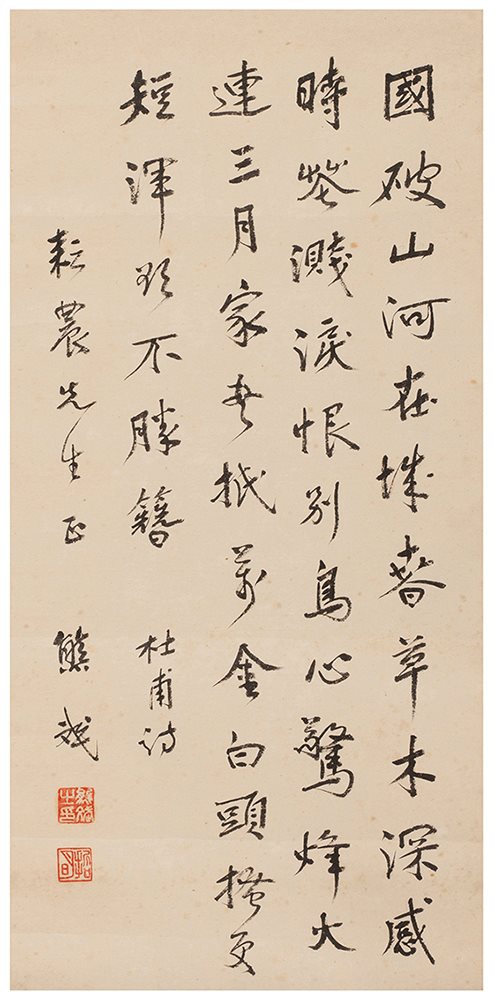 國破山河在城春草木深感
時花濺淚恨別鳥心驚烽火
連三月家書抵萬金白頭搔更
短渾欲不勝簪 杜甫詩
耘農先生正 熊斌
熊斌之印